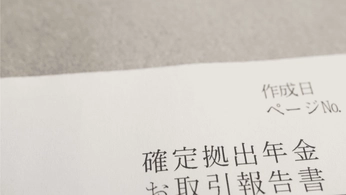 作成日
ページNo.
確定拠出年金
お取引報告書